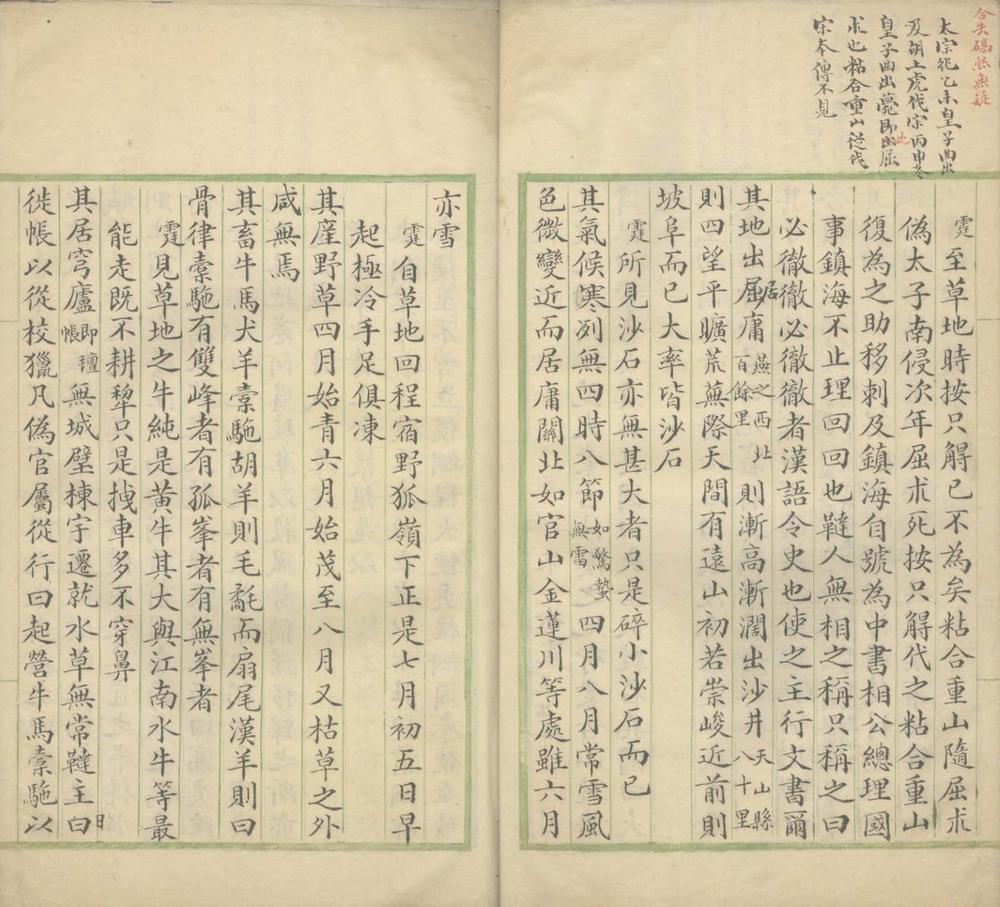 合失碣然無疑
太宗紀乙未皇子曲出
及胡土虎伐宋丙申冬
皇子曲出薨即出屈
此
朮也粘合重山從伐
宋本傳不見
霆至草地時按只䚟已不為矣粘合重山隨屈朮
偽太子南侵次年屈朮死按只䚟代之粘合重山
復為之助移剌及鎮海自號為中書相公總理國
事鎮海不止理回回也韃人無相之稱只稱之曰
必徹徹必徹徹者漢語令史也使之主行文書爾
其地出居庸燕之西北百餘里則漸高漸濶出沙井天山縣八十里
則四望平曠荒蕪際天間有遠山初若崇峻近前則
坡阜而已大率皆沙石
霆所見沙石亦無甚大者只是碎小沙石而已
其氣候寒冽無四時八節如驚蟄無雷四月八月常雪風
色微變近而居庸關北如官山金蓮川等處雖六月
亦雪
霆自草地回程宿野狐嶺下正是七月初五日早
起極冷手足俱凍
其產野草四月始青六月始茂至八月又枯草之外
咸無焉
其畜牛馬犬羊橐駞胡羊則毛氄而扇尾漢羊則曰
骨律橐駞有雙峰者有孤峯者有無峯者
霆見草地之牛純是黃牛其大與江南水牛等最
能走既不耕犂只是拽車多不穿鼻
其居穹廬即氊帳無城壁棟宇遷就水草無常韃主日
徙帳以從校獵凡偽官屬從行曰起營牛馬橐駞以